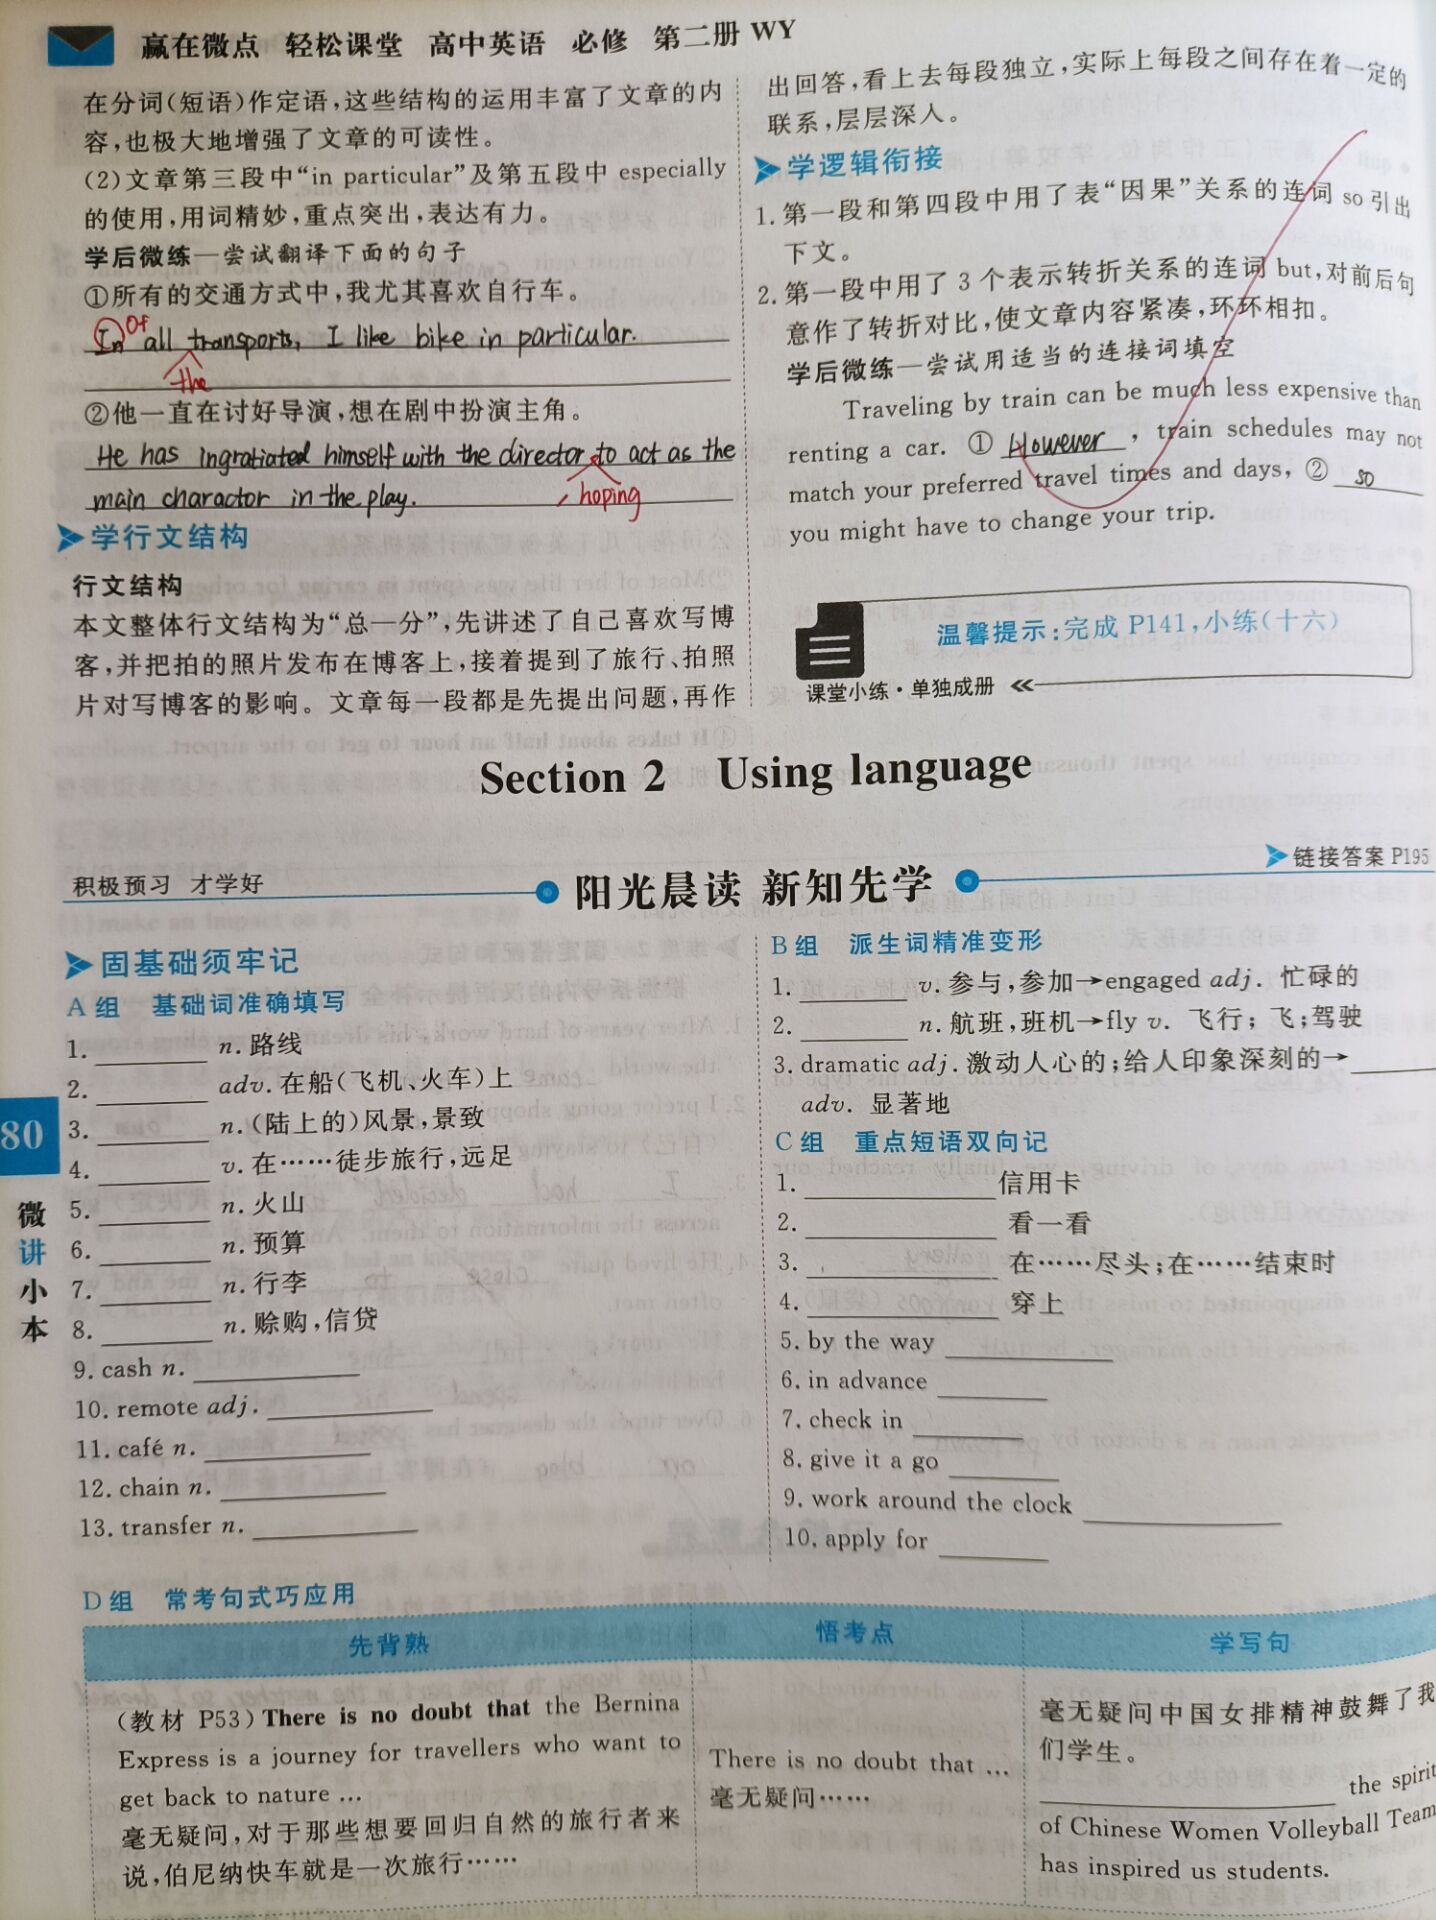 赢在微点 轻松课堂 高中英语 必修 第二册 WY
在分词(短语)作定语,这些结构的运用丰富了文章的内
容,也极大地增强了文章的可读性。
(2)文章第三段中“in particular”及第五段中 especially
的使用,用词精妙,重点突出,表达有力。
学后微练—尝试翻译下面的句子
①所有的交通方式中,我尤其喜欢自行车。
In Of all transports, I like bike in particular.
the
②他一直在讨好导演,想在剧中扮演主角。
He has ingratiated himself with the director to act as the
main charactor in the play.
, hoping
学行文结构
行文结构
本文整体行文结构为“总—分”,先讲述了自己喜欢写博
客,并把拍的照片发布在博客上,接着提到了旅行、拍照
片对写博客的影响。文章每一段都是先提出问题,再作
出回答,看上去每段独立,实际上每段之间存在着一定的
联系,层层深入。
学逻辑衔接
1. 第一段和第四段中用了表“因果”关系的连词 so 引出
下文。
2. 第一段中用了 3 个表示转折关系的连词 but,对前后句
意作了转折对比,使文章内容紧凑,环环相扣。
学后微练—尝试用适当的连接词填空
Traveling by train can be much less expensive than
renting a car. ① However , train schedules may not
match your preferred travel times and days, ② so
you might have to change your trip.
温馨提示:完成 P141,小练(十六)
课堂小练·单独成册
Section 2 Using language
链接答案 P195
积极预习 才学好
阳光晨读 新知先学
固基础须牢记
A 组 基础词准确填写
1. ________ n. 路线
2. ________ adv. 在船(飞机、火车)上
3. ________ n. (陆上的)风景,景致
4. ________ v. 在……徒步旅行,远足
5. ________ n. 火山
6. ________ n. 预算
7. ________ n. 行李
8. ________ n. 赊购,信贷
9. cash n. ________
10. remote adj. ________
11. café n. ________
12. chain n. ________
13. transfer n. ________
80
微
讲
小
本
B 组 派生词精准变形
1. ________ v. 参与,参加→engaged adj. 忙碌的
2. ________ n. 航班,班机→fly v. 飞行;飞;驾驶
3. dramatic adj. 激动人心的;给人印象深刻的→________
adv. 显著地
C 组 重点短语双向记
1. ________ 信用卡
2. ________ 看一看
3. ________ 在……尽头;在……结束时
4. ________ 穿上
5. by the way ________
6. in advance ________
7. check in ________
8. give it a go ________
9. work around the clock ________
10. apply for ________
D 组 常考句式巧应用
先背熟 悟考点 学写句
(教材 P53) There is no doubt that the Bernina
Express is a journey for travellers who want to
get back to nature ...
毫无疑问,对于那些想要回归自然的旅行者来
说,伯尼纳快车就是一次旅行……
There is no doubt that ...
毫无疑问……
毫无疑问中国女排精神鼓舞了我
们学生。
________ the spirit
of Chinese Women Volleyball Team
has inspired us students.